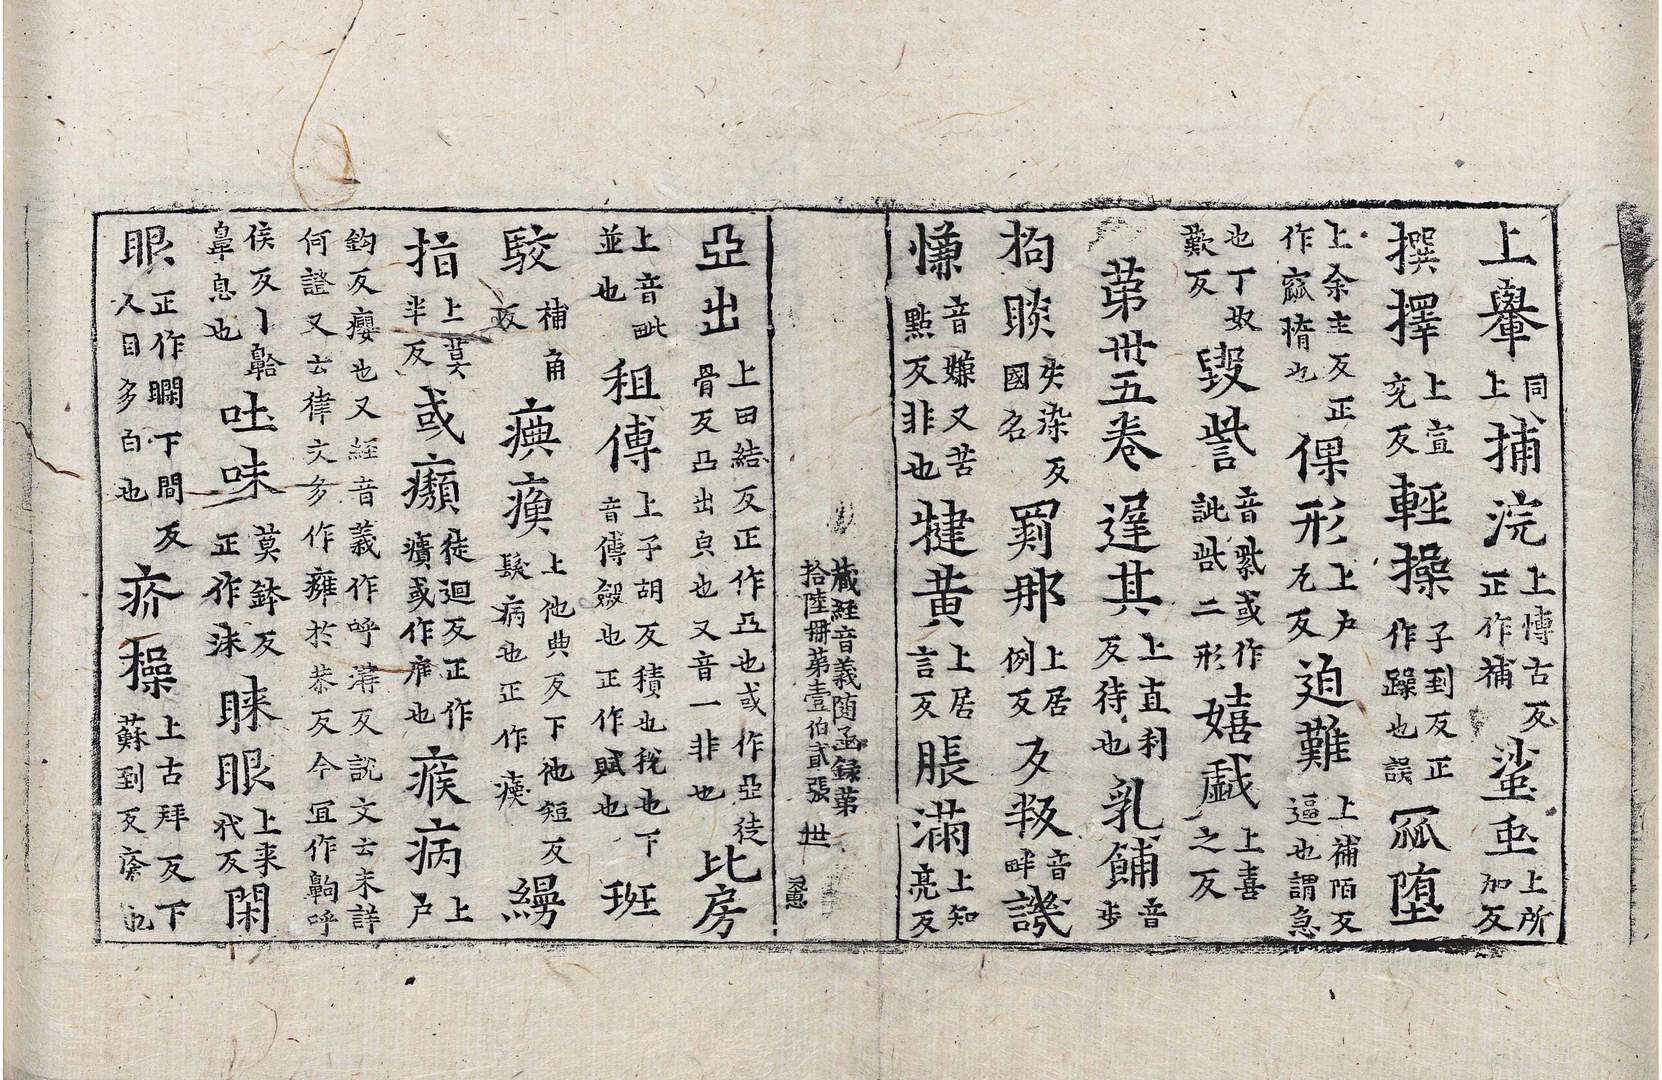 上轝同上捕浣上愽古反正作補蜇䖝上所加反
撰擇上宣充反輕操子到反正作躁也誤㼌堕
上余主反正作窳惰也倮形上户瓦反迫難上補陌反逼也謂急
也丁奴歎反毀訾音紫或作訿呰二形嬉戯上喜之反
苐卅五卷遅其上直利反待也乳餔音步
拘睒失染反國名罽那上居例反及叛音畔譏
慊音嫌又苦點反非也犍黄上居言反脹滿上知亮反
藏経音義随函録第拾陸冊第壹伯貳張 世
亞出上田結反正作凸也或作亞徒骨反凸出皃也又音一非也比房
上音毗並也租傅上子胡反積也稅也下音傅斂也正作賦也班
駮補角反㾕瘓上他典反下他短反髮病也正作㾕縵
指上莫半反或癩徒迴反正作㿉或作㾽也瘊病上户
鈎反癭也又経音義作呼溝反說文云未詳何證又云律文多作癰於恭反今冝作齁呼
侯反丨齁鼻息也吐味莫鉢反正作沬睞眼上来代反閑
眼正作瞯下閒反人目多白也疥㿋上古拜反下蘇到反瘡也